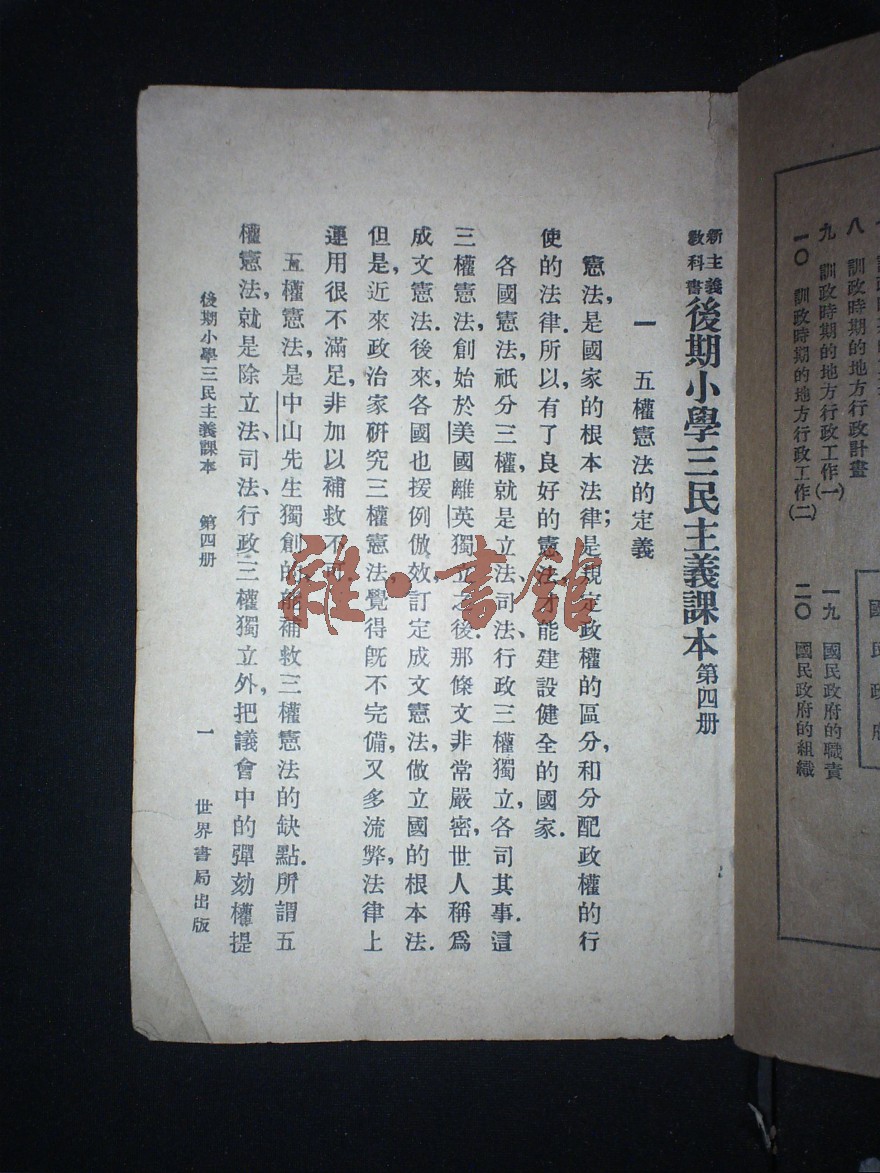 八　訓政時期的地方行政計畫
九　訓政時期的地方行政工作(一)
一〇　訓政時期的地方行政工作(二)
一九　國民政府的職責
二〇　國民政府的組織
國民政府
新主義教科書 後期小學三民主義課本 第四册
一　五權憲法的定義
憲法，是國家的根本法律；是規定政權的區分，和分配政權的行
使的法律．所以，有了良好的憲法，才能建設健全的國家．
各國憲法，祇分三權，就是立法、司法、行政三權獨立，各司其事．這
三權憲法，創始於美國離英獨立之後．那條文非常嚴密，世人稱爲
成文憲法．後來，各國也援例倣效訂定成文憲法，做立國的根本法．
但是，近來政治家硏究三權憲法，覺得旣不完備，又多流弊，法律上
運用很不滿足，非加以補救不可．
五權憲法，是中山先生獨創的，能補救三權憲法的缺點．所謂五
權憲法，就是除立法、司法、行政三權獨立外，把議會中的彈劾權提
後期小學三民主義課本　第四册
一
世界書局出版
雜·書館